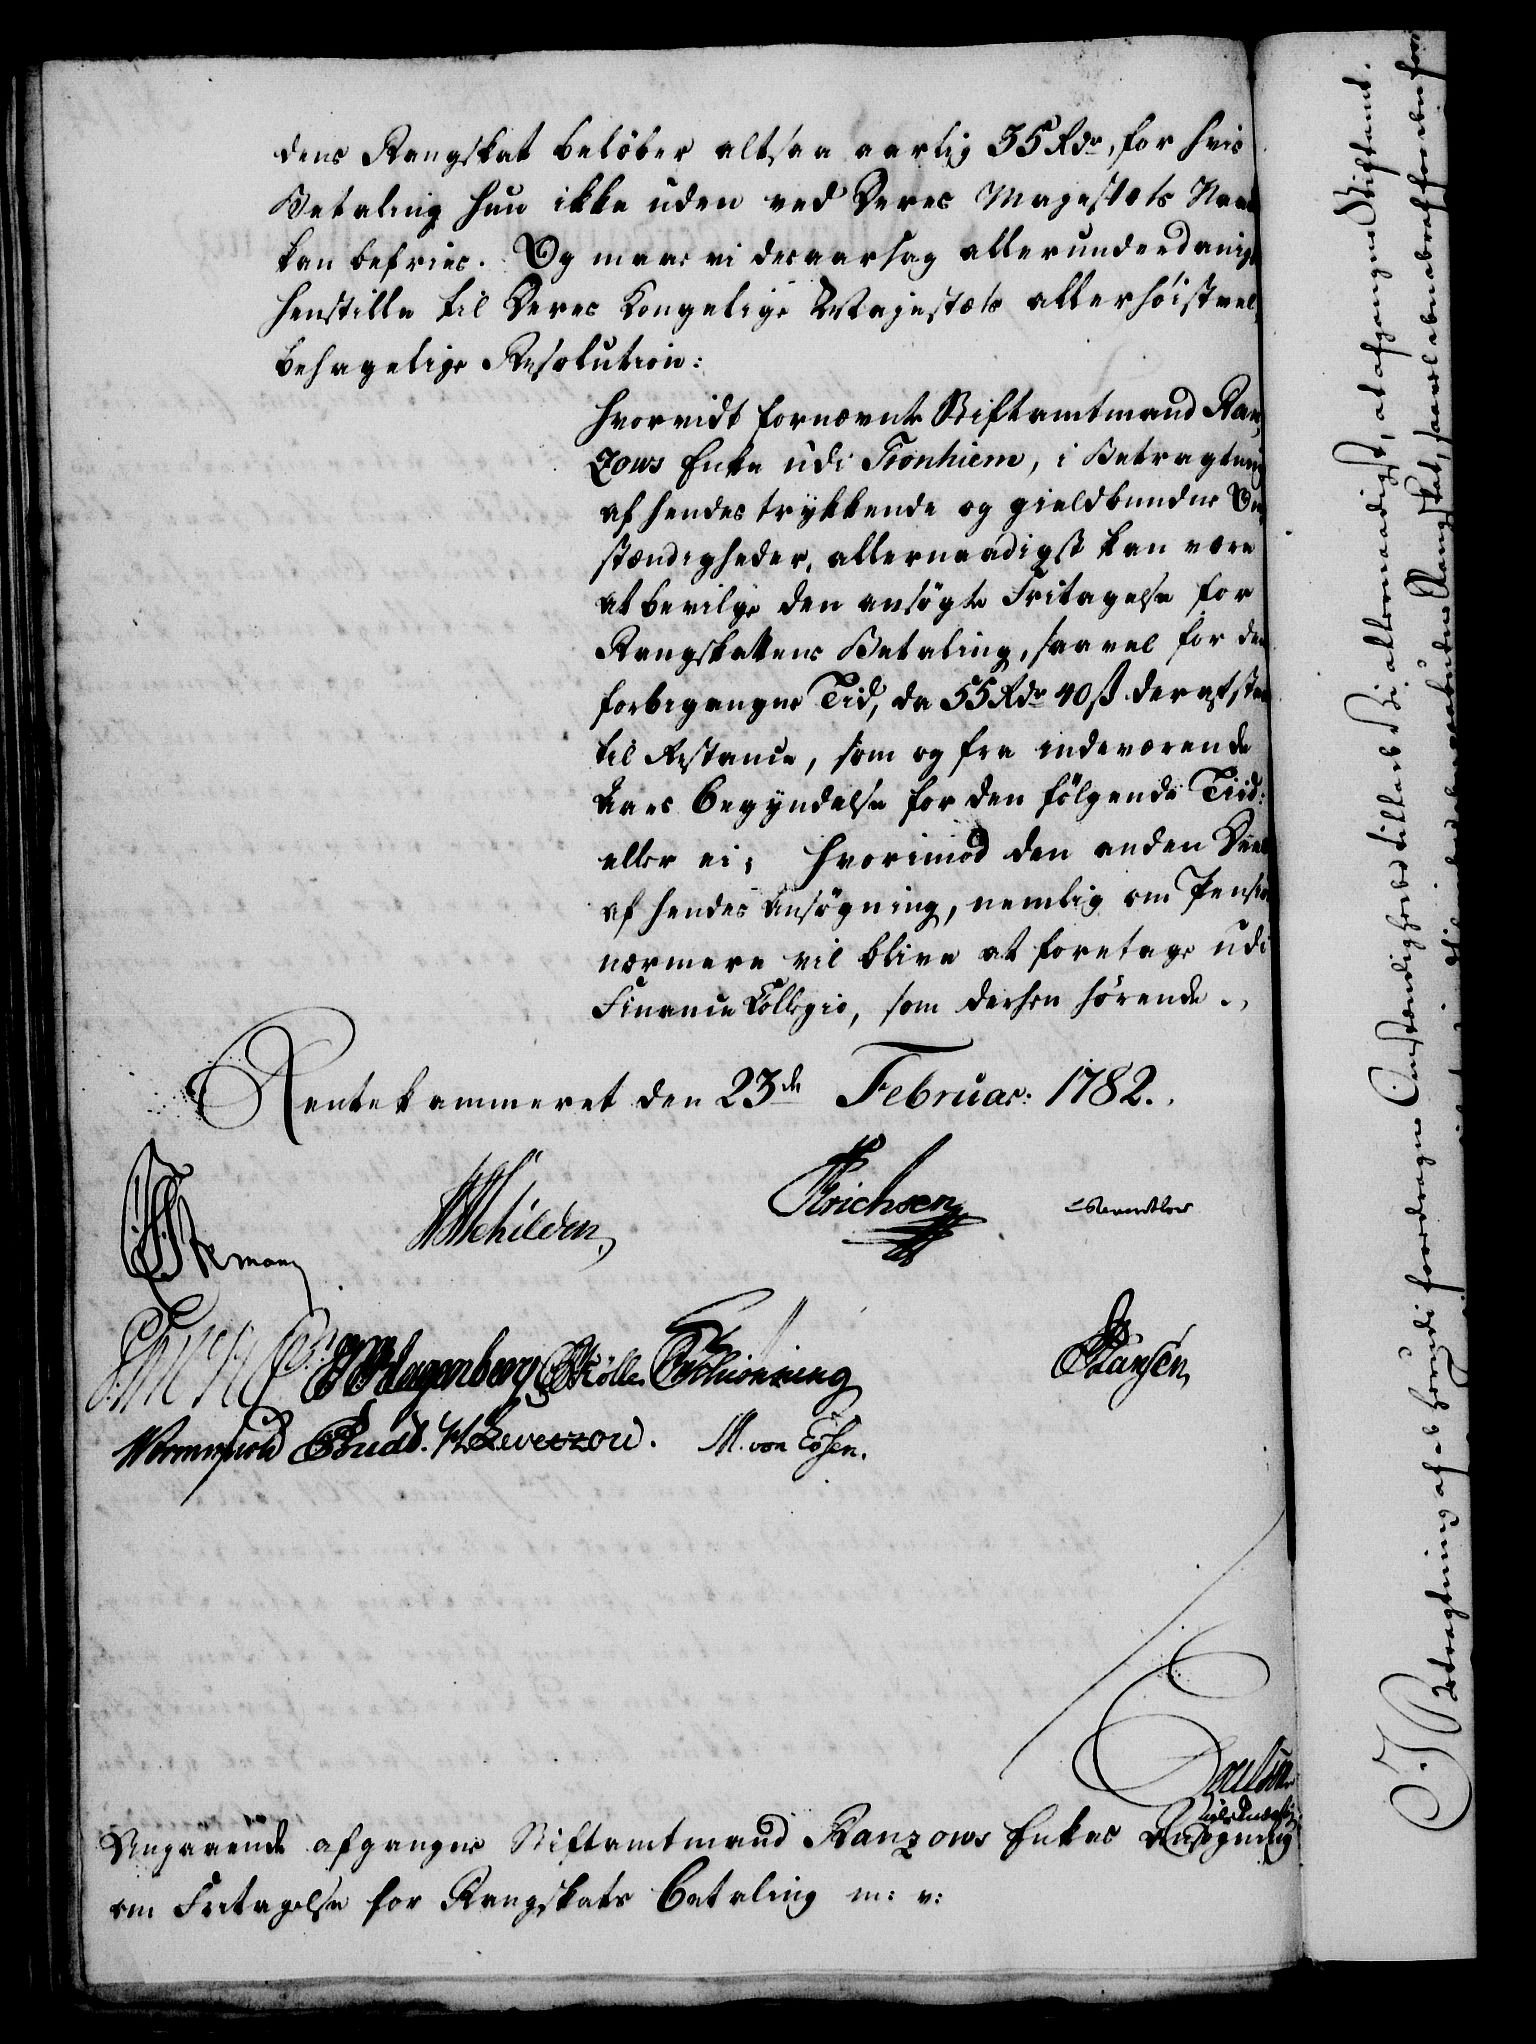 dens Rangskat beløber altsaa aarlig 35 Rdr, for hvis
Betaling hun ikke uden ved Deres Majestets Naade
kan befries. Og maae vi desaarsag allerunderdanigst
henstille til Deres Kongelige Majestæts allerhöistvel,
behagelige Resolution:
Hvorvidt fornævnte Stiftamtmand Ran,
zows Enke udi Tronhiem, i Betragtning
af hendes trykkende og gieldbundne Om,
stændigheder, allernaadigst kan være
at bevilge den ansögte Fritagelse for
Rangskattens Betaling, saavel for den
forbigangne Tid, da 55 Rdr 40 ß deraf staae
til Restance, som og fra indeværende
Aars Begyndelse for den fölgende Tiid:
eller ei; Hvorimod den anden Deel
af hendes Ansögning, nemlig om Pension
nærmere vil blive at foretage udi
Finance Collegio, som derhen hörende.
Rentekammeret den 23de Februar: 1782.
Stemann Schilden Erichsen
Hagenberg Müller Schiønning Hansen
Wormskiold Budtz. Leverzou. M. von Essen.
Angaaende afgangne Stiftamtmand Ranzows Enkes Ansögning
om Fritagelse for Rangskats Betaling m: v:
I Betragtning af de herudi foredragne Omstændigheder tillade Vi allernaadigst, at afgangne Stiftamt.